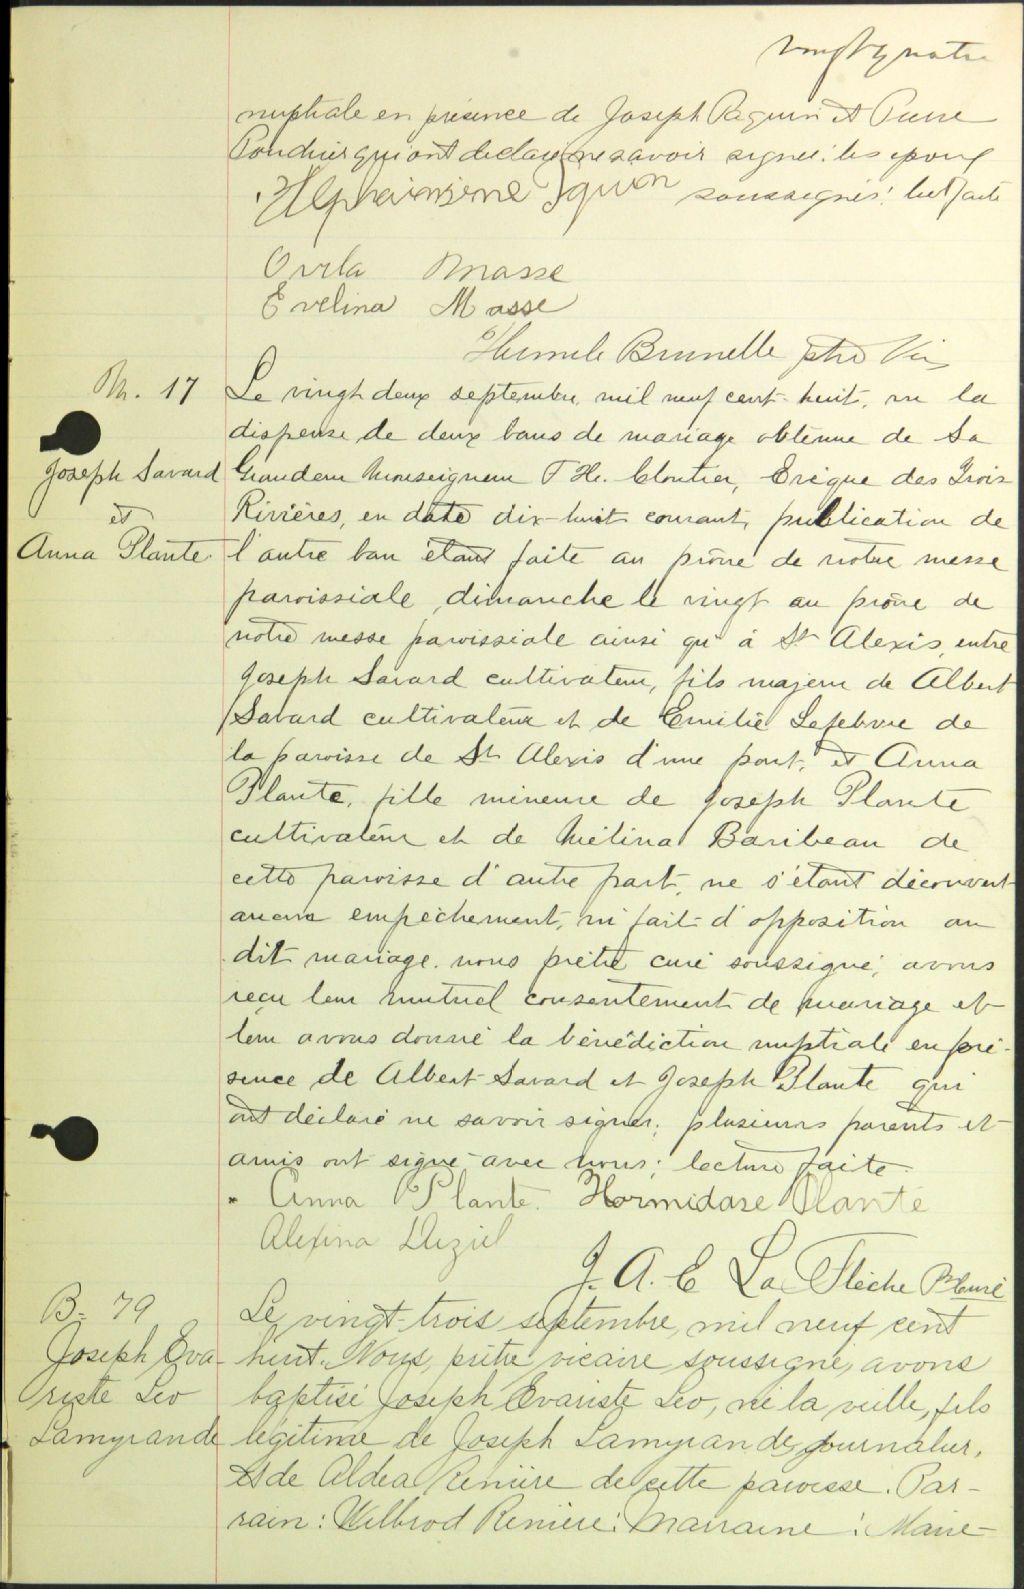 vingt quatre
nuptiale en présence de Joseph Paquin et Pierre
qui ont déclaré ne savoir signer: les époux
soussignés: lect faite
Ovila Masse
Evelina Masse
Brunelle ptre Vic
M. 17
Joseph Savard
et
Anna Plante
Le vingt deux septembre, mil neuf cent huit, vu la
dispense de deux bans de mariage obtenue de Sa
Grandeur Monseigneur F. X. Cloutier, Evêque des Trois
Rivières, en date dix-huit courant, publication de
l'autre ban étant faite au prône de notre messe
paroissiale, dimanche le vingt au prône de
notre messe paroissiale ainsi qu'à St Alexis, entre
Joseph Savard cultivateur, fils majeur de Albert
Savard cultivateur et de Emilie Lefebvre de
la paroisse de St Alexis d'une part, et Anna
Plante, fille mineure de Joseph Plante
cultivateur et de Mélina Baribeau de
cette paroisse d'autre part, ne s'étant découvert
aucun empêchement, ni fait d'opposition au
dit mariage. nous prêtre curé soussigné, avons
reçu leur mutuel consentement de mariage et
leur avons donné la bénédiction nuptiale en pré-
sence de Albert Savard et Joseph Plante qui
ont déclaré ne savoir signer; plusieurs parents et
amis ont signé avec nous; lecture faite.
Anna Plante. Hormidase Plante
Alexina Duziel
J. A. E La Flèche Ptre curé
B. 79
Joseph Eva-
riste Leo
Lamyrande
Le vingt-trois septembre, mil neuf cent
huit. Nous, prêtre vicaire soussigné, avons
baptisé Joseph Evariste Leo, né la veille, fils
légitime de Joseph Lamyrande, journalier,
et de Aldea Renière de cette paroisse. Par-
rain: Wilbrod Renière: Marraine: Marie-